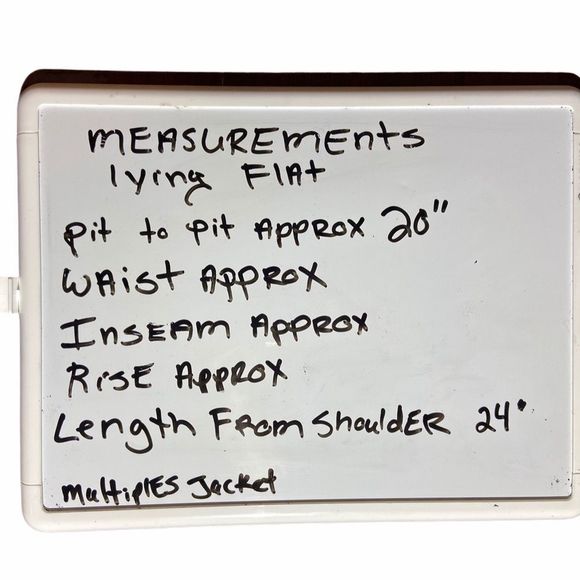 MEASUREMENTS
lying FLAT
pit to pit APPROX 20"
WAIST APPROX
INSEAM APPROX
RISE APPROX
Length From ShouldER 24"
MultiplES Jacket